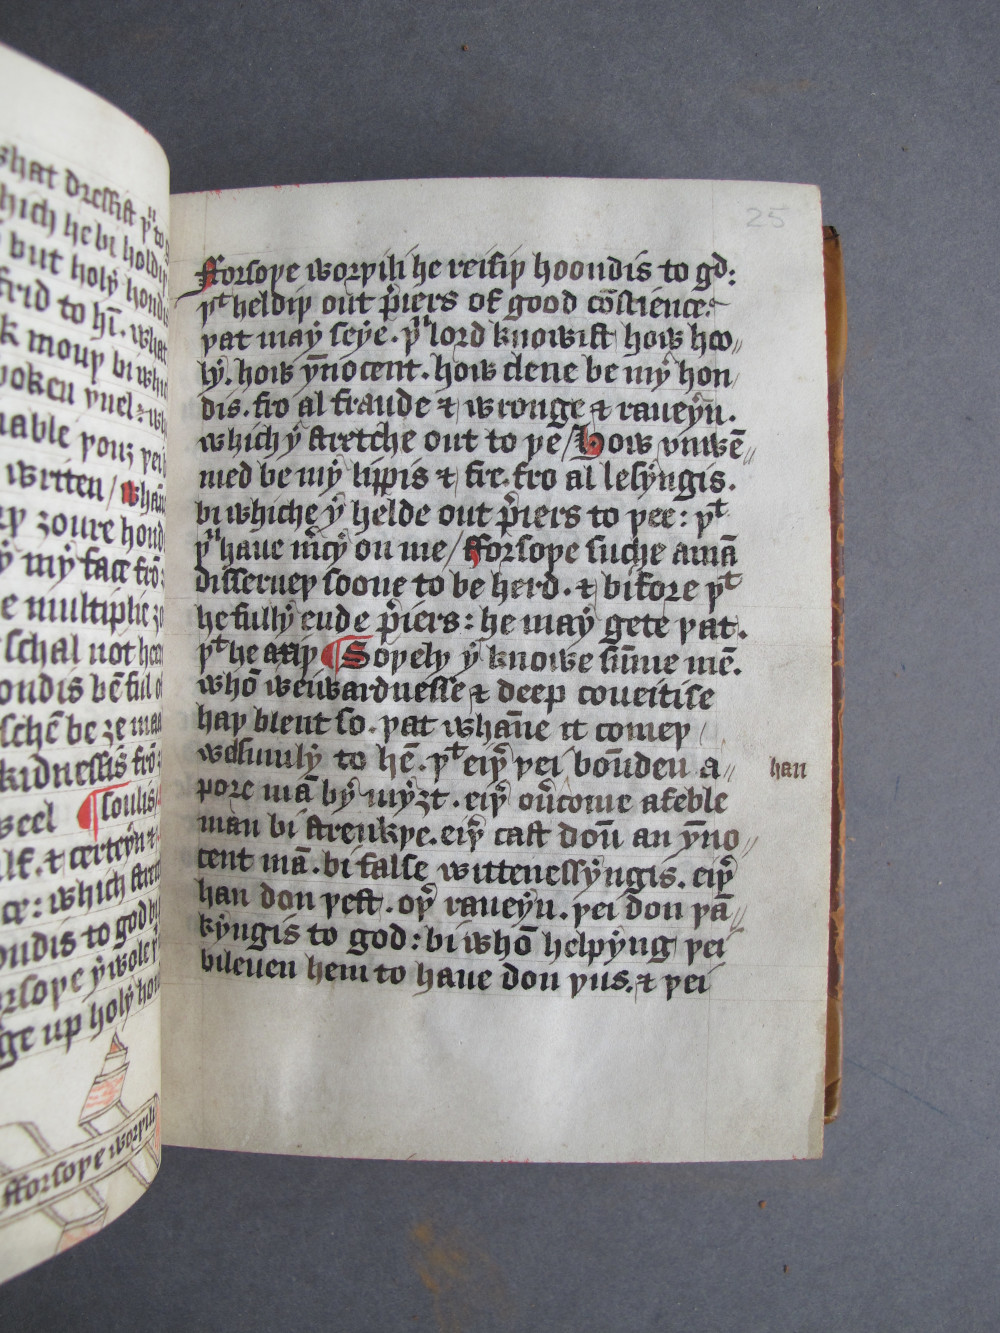 what dressist þᵘ to g
hich he bi holdiþ
but holy hondis
frid to hī. what
k mouþ bi whic
poken yuel : wh
nable þouȝ þei b
writen / whan̄e
rþ ȝoure hond
ẏ mẏ face fro ȝ
e multiplie ȝo
schal not heer
ondis bē ful o
schē be ȝe maa
kidnessis fro ȝ
seel ¶ soulis
lf. & certeẏn &
ce : which strec
ondis to god bu
orsoþe ẏ wole þ
ge up holẏ hon
fforsoþe worþili
25
fforsoþe worþili he reisiþ hoondis to gd:
þᵗ heldiþ out p̃iers of good cōscience.
þat maẏ seẏe. þᵘ lord knowist how hoo〃
lẏ. how ẏnocent. how clene be mẏ hon/
dis. fro al fraude & wronge & raueẏn̄.
which ẏ stretche out to þe / How vnwē〃
med be mẏ lippis & fre. fro al lesẏngis.
bi whiche ẏ helde out p̃iers to þee : þᵗ
þᵘ haue m̃cẏ on me / fforsoþe suche a mā
disserueþ soone to be herd. & bifore þᵗ
he fullẏ ende p̃iers : he maẏ gete þat.
þᵗ he axiþ ¶ Soþelẏ ẏ knowe sūme mē.
whō weiwardnesse & deep coueitise
haþ blent so. þat whan̄e it comeþ /
welsumlẏ to hē. þᵗ eiþ̃ þei boūden a〃
pore mā bẏ mẏȝt. eiþ̃ ou̅come a feble
man bi strenkþe. eiþ̃ cast doū an ẏno〃
cent mā. bi false wittenessẏngis. eiþ̃
han don þeft. oþ̃ raueẏn. þei don þā〃
kẏngis to god : bi whō helpẏng þei
bileuen hem to haue don þus. & þei
han